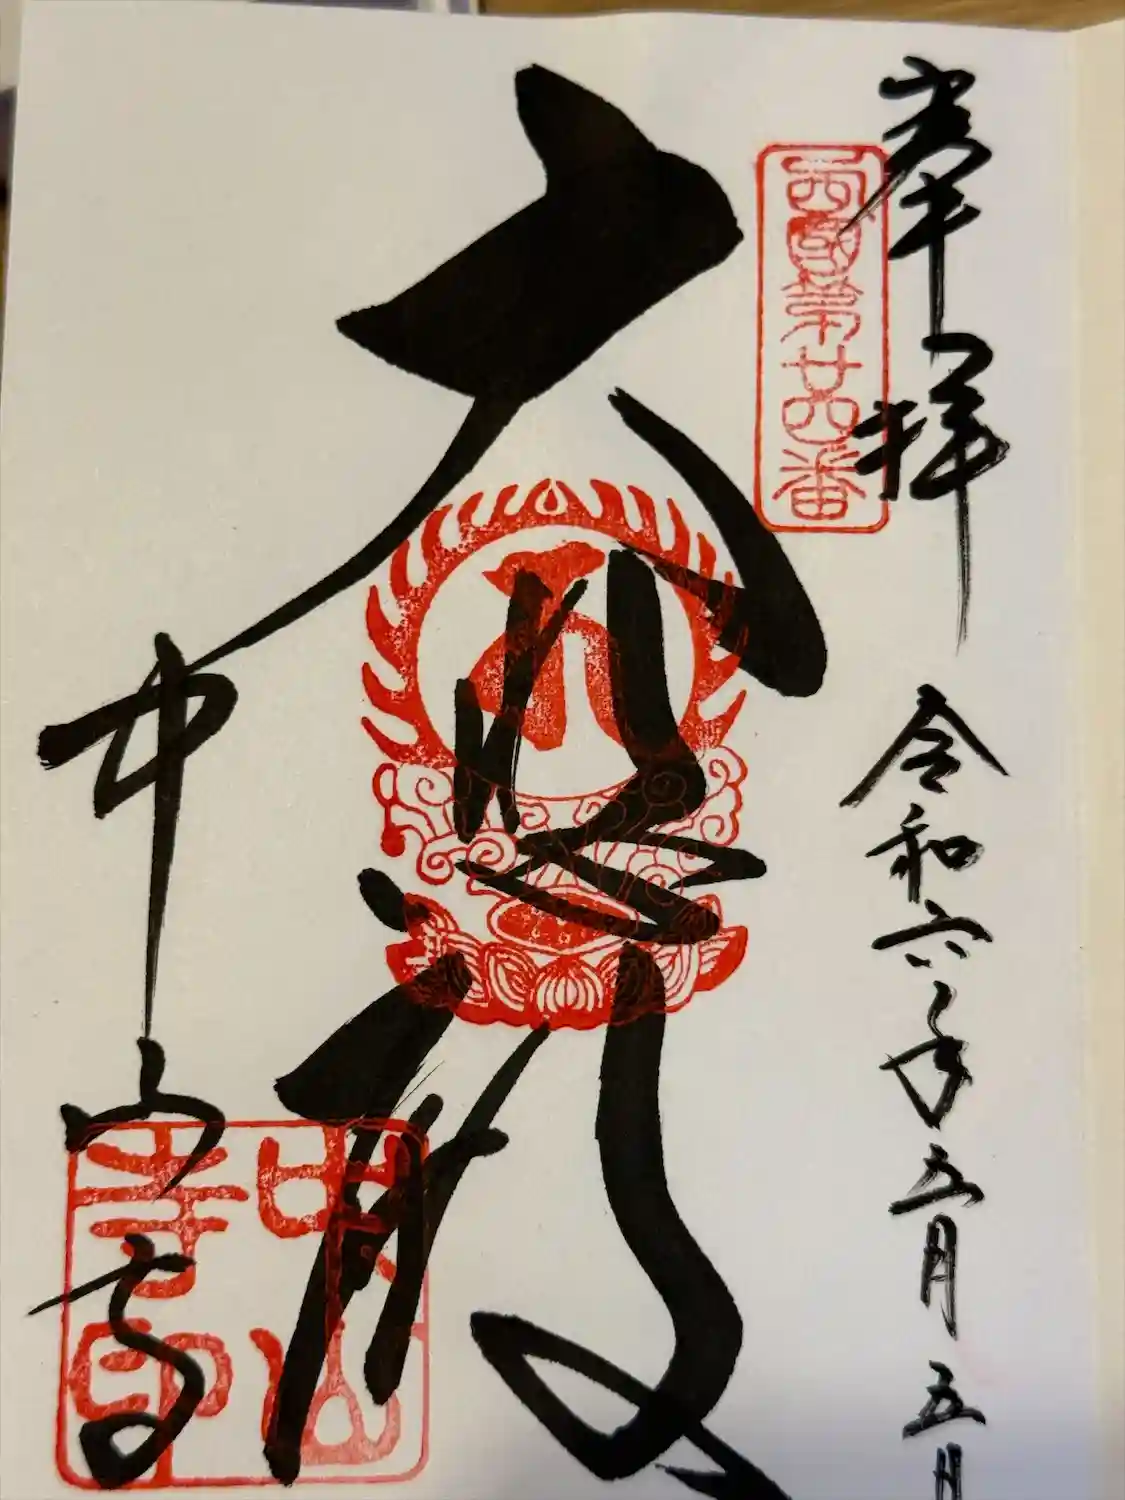 奉拝
令和六年五月五日
西國第廿四番
大悲殿
中山寺
中山寺印